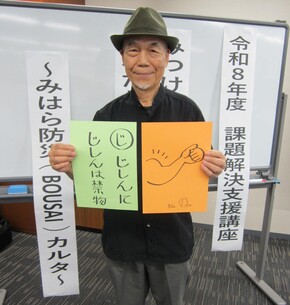 令和8年度 課題解決支援講座
みつけ
～みはら防災(BOUSAI)カルタ～
じ じしんに
じしんは禁物